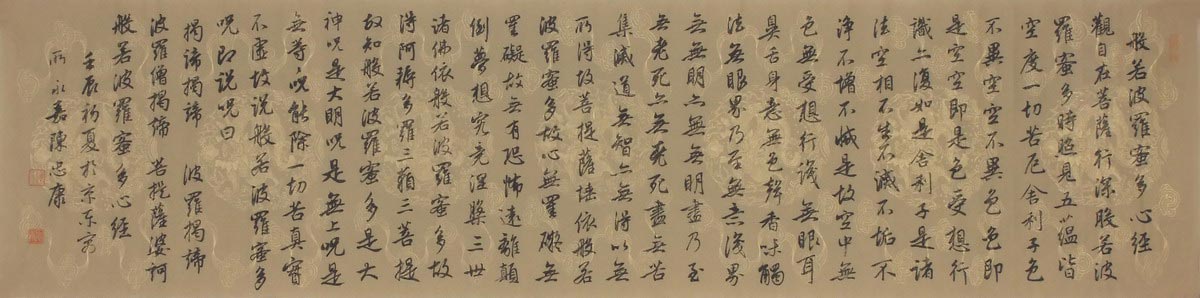 般若波羅蜜多心經
觀自在菩薩行深般若波
羅蜜多時照見五蘊皆
空度一切苦厄舍利子色
不異空空不異色色即
是空空即是色受想行
識亦復如是舍利子是諸
法空相不生不滅不垢不
淨不增不減是故空中無
色無受想行識無眼耳
鼻舌身意無色聲香味觸
法無眼界乃至無意識界
無無明亦無無明盡乃至
無老死亦無老死盡無苦
集滅道無智亦無得以無
所得故菩提薩埵依般若
波羅蜜多故心無罣礙無
罣礙故無有恐怖遠離顛
倒夢想究竟涅槃三世
諸佛依般若波羅蜜多故
得阿耨多羅三藐三菩提
故知般若波羅蜜多是大
神咒是大明咒是無上咒是
無等咒能除一切苦真實
不虛故說般若波羅蜜多
咒即說咒曰
揭諦揭諦 波羅揭諦
波羅僧揭諦 菩提薩婆訶
般若波羅蜜多心經
壬辰初夏於京東寓
所永嘉陳忠康